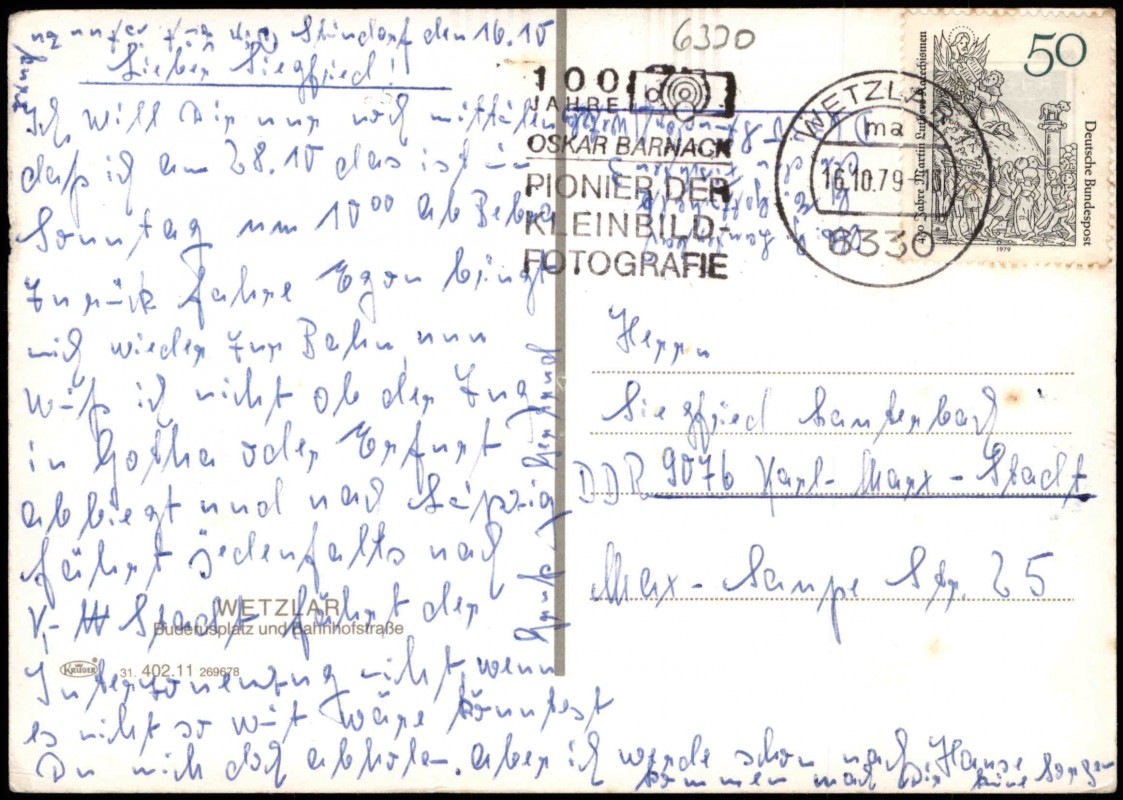 Stündorf den 16.10
Lieber Siegfried!
Ich will Dir nur noch mitteilen
daß ich am 28.10 das ist ein
Sonntag um 10⁰⁰ ab Bebra
zurück fahre Egon bringt
mich wieder zur Bahn, nun
weiß ich nicht ob der Zug
in Gotha oder Erfurt
abbiegt und nach Leipzig
fährt jedenfalls nach
K,-M Stadt fährt der
Interzonenzug nicht, wenn
es nicht so weit wäre könntest
Du mich doch abholen. aber ich werde schon nach Hause
kommen mach Dir keine Sorgen
WETZLAR
Buderusplatz und Bahnhofstraße
KRÜGER
31. 402.11 269678
6320
100
JAHRE
OSKAR BARNACK
PIONIER DER
KLEINBILD-
FOTOGRAFIE
WETZLAR
ma
16.10.79
6330
50
Deutsche Bundespost
450 Jahre Martin Luthers Katechismen
1979
Herrn
Siegfried Lauterbach
DDR 9076 Karl-Marx-Stadt
Max-Saupe Str. 25